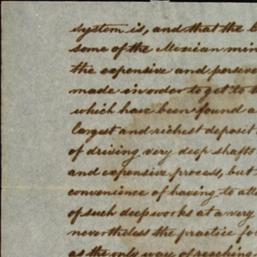 system is, and that the
some of the Mexican
the expensive and
made in order to get to
which have been found
largest and richest deposit
of driving very deep shafts
and expensive process, but
convenience of having to
of such deep works at a very
nevertheless the practice
as the only way of reaching